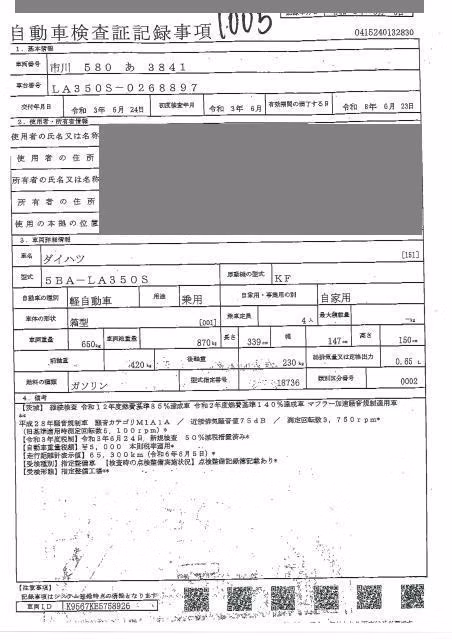 1005
自動車検査証記録事項
0415240132830
1. 基本情報
車両番号 市川 580 あ 3841
車台番号 LA350S-0268897
交付年月日 令和 3年 6月 24日 初度検査年月 令和 3年 6月 有効期間の満了する日 令和 8年 6月 23日
2. 使用者・所有者情報
使用者の氏名又は名称
使用者の住所
所有者の氏名又は名称
所有者の住所
使用の本拠の位置
3. 車両詳細情報
車名 ダイハツ [151]
型式 5BA-LA350S 原動機の型式 KF
自動車の種別 軽自動車 用途 乗用 自家用・事業用の別 自家用
車体の形状 箱型 [001] 乗車定員 4人 最大積載量 -kg
車両重量 650kg 車両総重量 870kg 長さ 339cm 幅 147cm 高さ 150cm
前軸重 420kg 後軸重 230kg 総排気量又は定格出力 0.65 L
燃料の種類 ガソリン 型式指定番号 18736 類別区分番号 0002
4. 備考
【茨城】 継続検査 令和12年度燃費基準85%達成車 令和2年度燃費基準140%達成車 マフラー加速騒音規制適用車
**
平成28年騒音規制車 騒音カテゴリM1A1A / 近接排気騒音値75dB / 測定回転数3,750rpm*
(旧基準適用時測定回転数5,100rpm)*
【令和3年度税制】令和3年6月24日 新規検査 50%減税措置済み*
【自動車重量税額】¥5,000 本則税率適用*
【走行距離計表示値】65,300km(令和6年6月5日)*
【受検種別】指定整備車 【検査時の点検整備実施状況】点検整備記録簿記載あり*
【受検形態】指定整備工場**
【注意事項】
記録事項はシステム登録時点の情報となります
車両ID K9567KE5758926